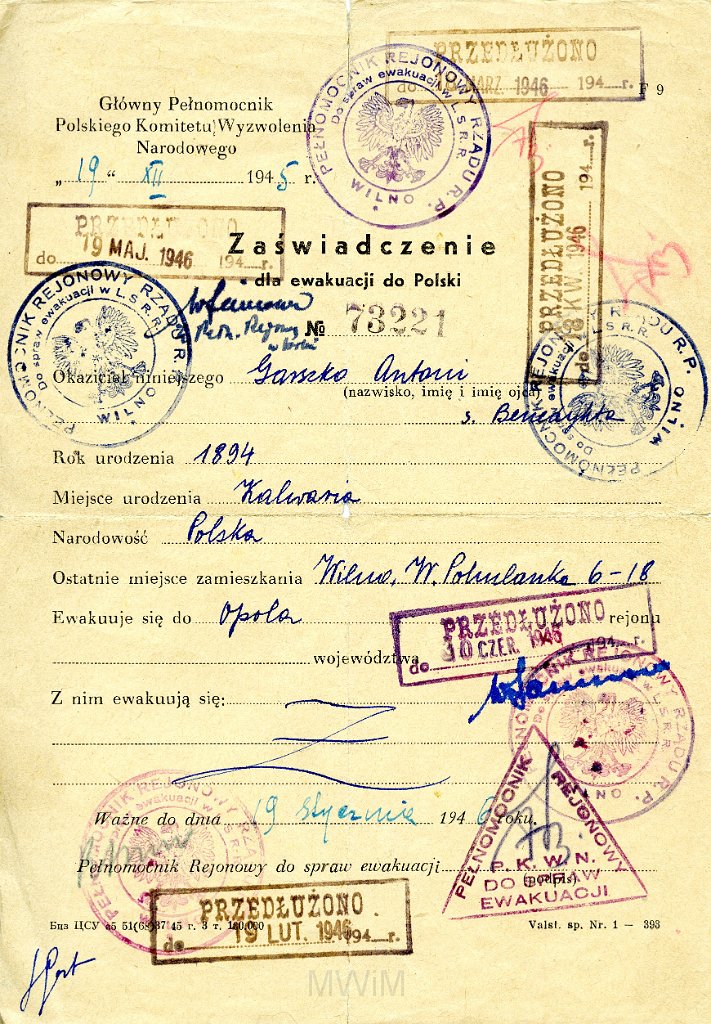 PRZEDŁUŻONO
do MARZ. 1946 194 r.
F 9
PEŁNOMOCNIK REJONOWY RZĄDU R.P.
Do spraw ewakuacji w L.S.R.R.
WILNO
Główny Pełnomocnik
Polskiego Komitetu Wyzwolenia
Narodowego
„ 19 “ XII 1945 r.
PRZEDŁUŻONO
do 19 MAJ. 1946 194 r.
PRZEDŁUŻONO
do 18 KW. 1946 194 r.
Zaświadczenie
dla ewakuacji do Polski
№ 73221
PEŁNOMOCNIK REJONOWY RZĄDU R.P.
Do spraw ewakuacji w L.S.R.R.
WILNO
PEŁNOMOCNIK REJONOWY RZĄDU R.P.
Do spraw ewakuacji w L.S.R.R.
WILNO
Okaziciel niniejszego Garszko Antoni
(nazwisko, imię i imię ojca)
s. Benedykta
Rok urodzenia 1894
Miejsce urodzenia Kalwaria
Narodowość Polska
Ostatnie miejsce zamieszkania Wilno, W. Pohulanka 6-18
Ewakuuje się do Opola rejonu
PRZEDŁUŻONO
do 10 CZER. 1946 194 r.
województwa
Z nim ewakuują się:
PEŁNOMOCNIK REJONOWY RZĄDU R.P.
Do spraw ewakuacji w L.S.R.R.
WILNO
Ważne do dnia 19 stycznia 1946 roku.
PEŁNOMOCNIK REJONOWY
P.K.W.N.
DO SPRAW
EWAKUACJI
PEŁNOMOCNIK REJONOWY RZĄDU R.P.
Do spraw ewakuacji w L.S.R.R.
Pełnomocnik Rejonowy do spraw ewakuacji
(podpis)
PRZEDŁUŻONO
do 19 LUT. 1946 194 r.
Valst. sp. Nr. 1 — 393
MWiM